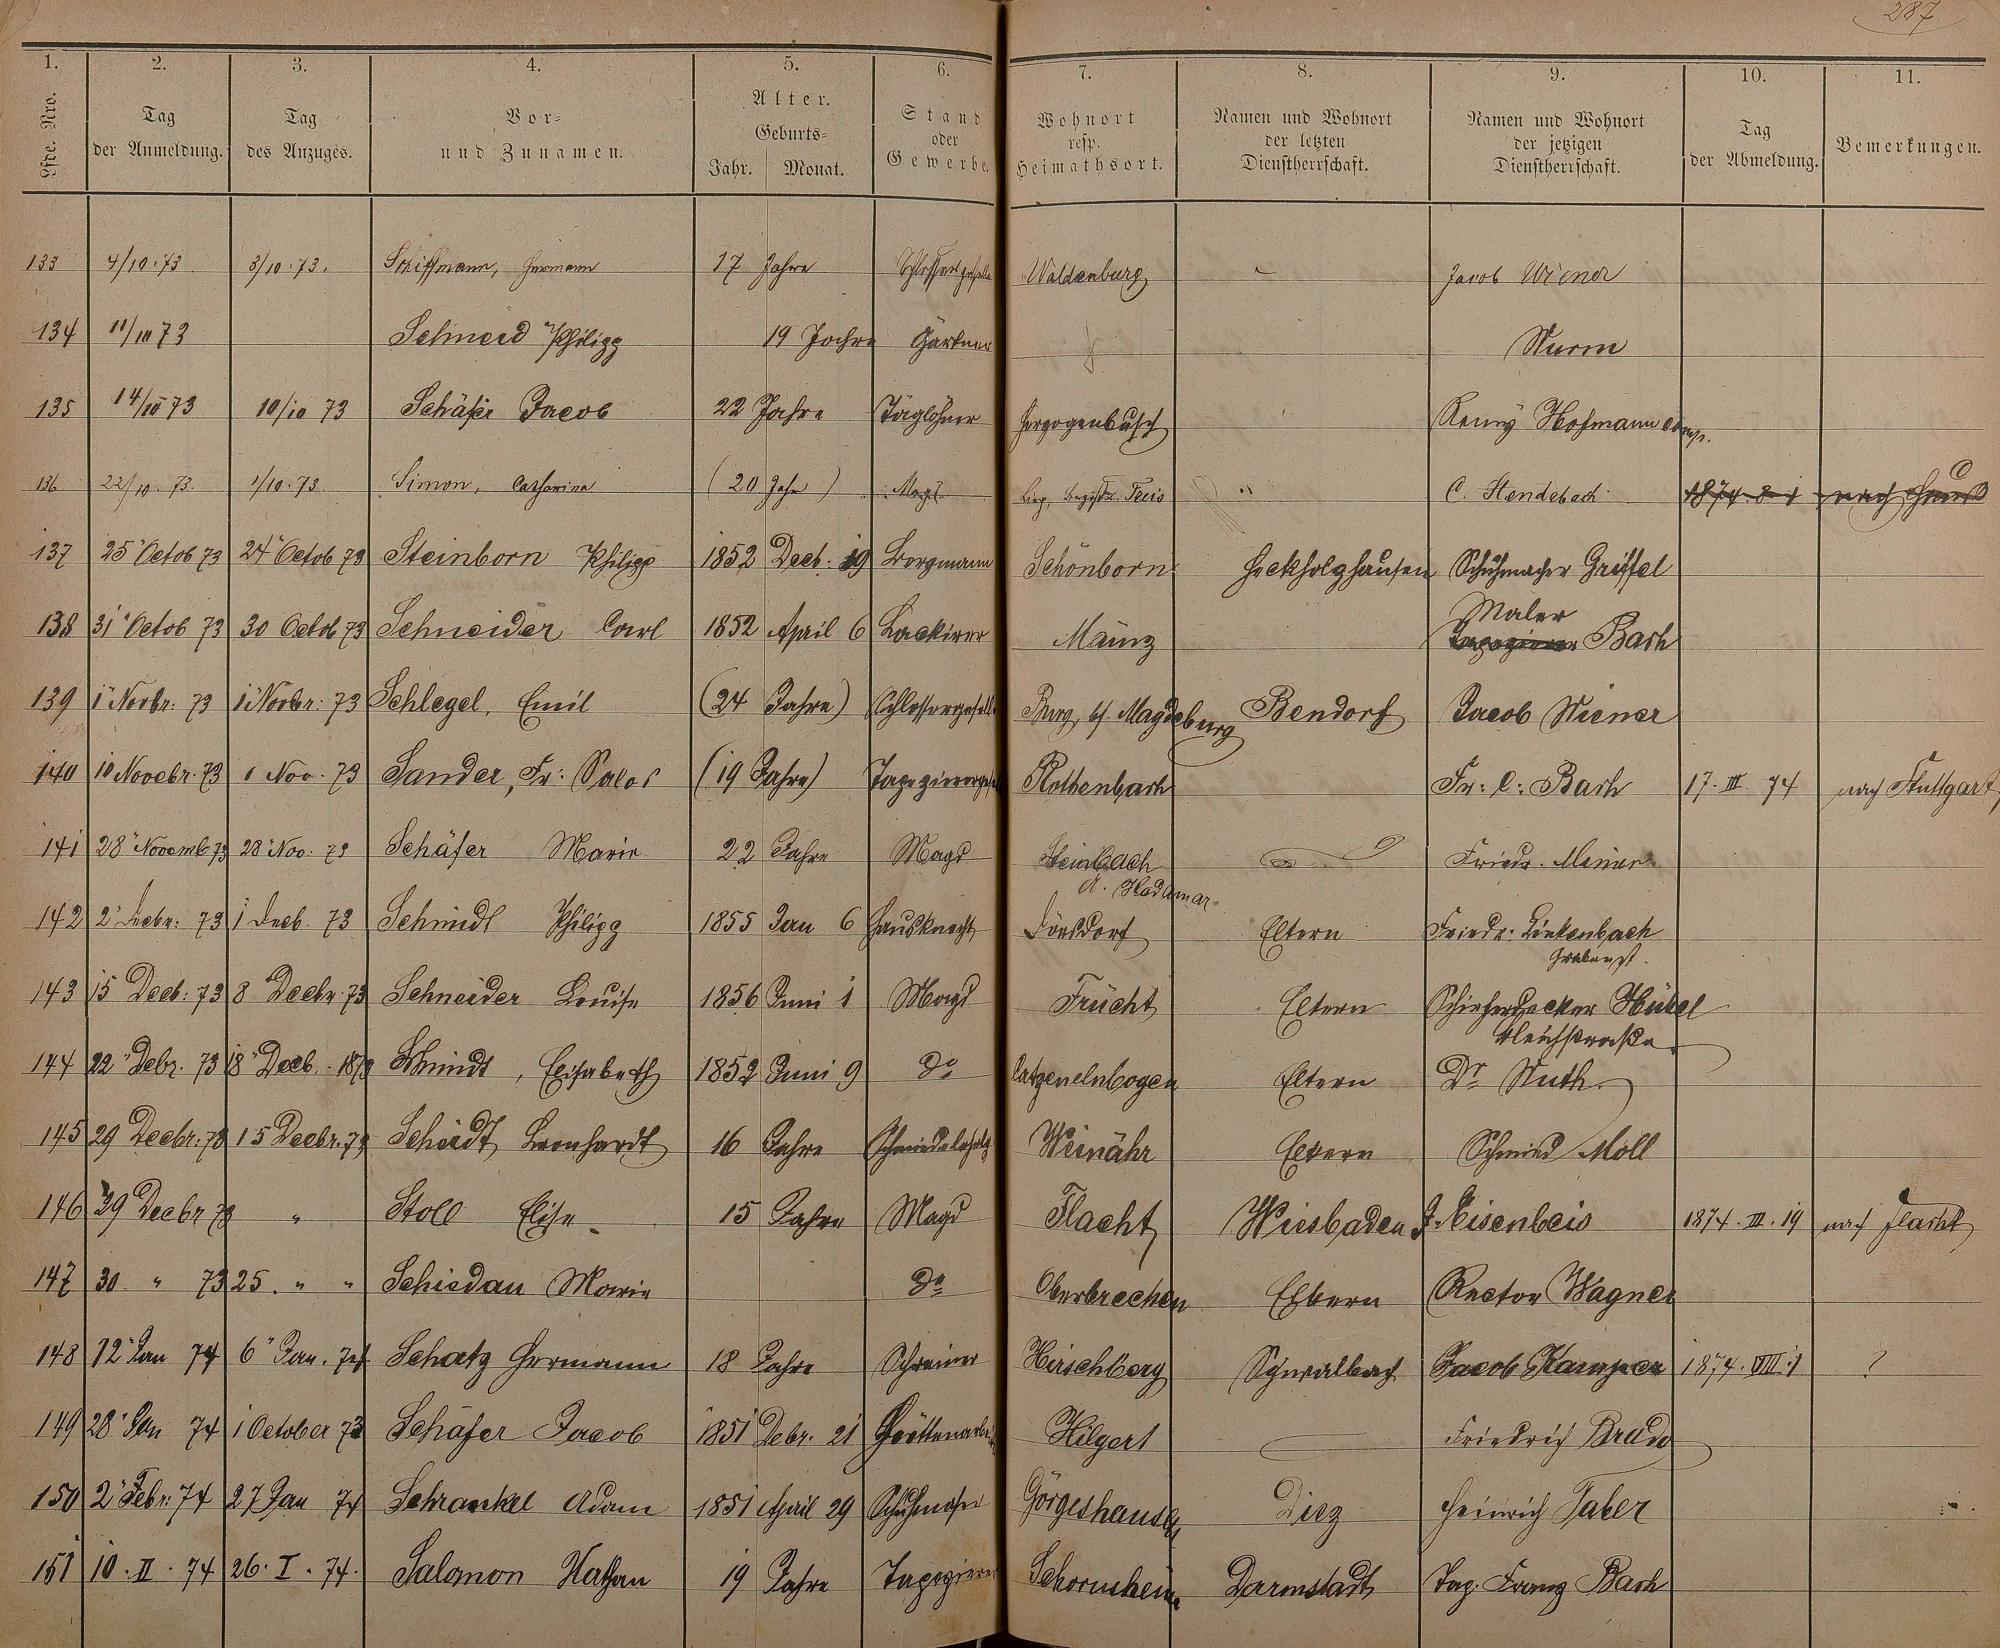 287
1. 2. 3. 4. 5. 6. 7. 8. 9. 10. 11.
Lfde. Nro. Tag der Anmeldung. Tag des Anzuges. Vor- und Zunamen. Alter. Geburts- Jahr. Monat. Stand oder Gewerbe. Wohnort resp. Heimathsort. Namen und Wohnort der letzten Dienstherrschaft. Namen und Wohnort der jetzigen Dienstherrschaft. Tag der Abmeldung. Bemerkungen.
133 4/10.73 3/10.73. Schiffmann, Hermann 17 Jahre Schlossergeselle Waldenburg " Jacob Wiener
134 11/10 73 Schmid Philipp 19 Jahre Gärtner Wurm
135 14/10 73 10/10 73 Schäfer Jacob 22 Jahre Taglöhner Herzogenbusch Remy Hofmann Comp.
136 22/10.73. 1/10.73 Simon, Catharina (20 Jahr) Magd " C. Hendebach 1874. 8 1 nach Haus
137 25" Octob 73 24" Octob 73 Steinborn Philipp 1852 Decb. 19 Bergmann Schönborn Heckholzhausen Schuhmacher Griffel
138 31" Octob 73 30 Octob 73 Schneider Carl 1852 April 6 Lackirer Mainz Maler
Tapezierer Bach
139 1" Novbr: 73 1" Novbr: 73 Schlegel, Emil (24 Jahre) Schlossergeselle Burg, b/ Magdeburg Bendorf Jacob Wiener
140 10 Novebr. 73 1 Nov. 73 Sander, Fr: (19 Jahre) Tapezierergesell Rothenbach Fr: C: Bach 17. III. 74 nach Stuttgart
141 28" Novemb 73 28" Nov: 73 Schäfer Marie 22 Jahre Magd Steinbach Friedr.
A. Hadamar
142 2" Decbr: 73 1 Decb. 73 Schmidt Philipp 1855 Jan 6 Hausknecht Dörsdorf Eltern Friedr: Linkenbach
Grabenst.
143 15 Decb: 73 8 Decbr. 73 Schneider Louise 1856 Juni 1 Magd Frücht Eltern Schieferdecker Hübel
Bleichstraße
144 22" Debr. 73 18" Decb. 1873 Schmidt, Elisabeth 1852 Juni 9 do Catzenelnbogen Eltern Dr Muth
145 29 Decbr: 73 15 Decbr. 73 Scheidt, Leonhardt 16 Jahre Schmiedelehrlg Weinähr Eltern Schmied Möll
146 29 Decbr 73 " Stoll Elise 15 Jahre Magd Flacht Wiesbaden J. Eisenbeis 1874. III. 19 nach Flacht
147 30 " 73 25. " " Schiedau Marie do Oberbrechen Eltern Rector Wagner
148 12" Jan 74 6" Jan. 74 Schatz Hermann 18 Jahre Schreiner Hirschberg Schwalbach Jacob Kamper 1874. VIII. 1 ?
149 28" Jan 74 1 October 73 Schäfer Jacob 1851 Debr. 21 Hüttenarbeiter Hilgert Friedrich
150 2" Febr: 74 27 Jan 74 Schrankel Adam 1851 April 29 Schuhmacher Görgeshausen Diez Heinrich Faber
151 10. II. 74 26. I. 74. Salomon Nathan 19 Jahre Tapezierer Schornsheim Darmstadt Tap. Franz Bach